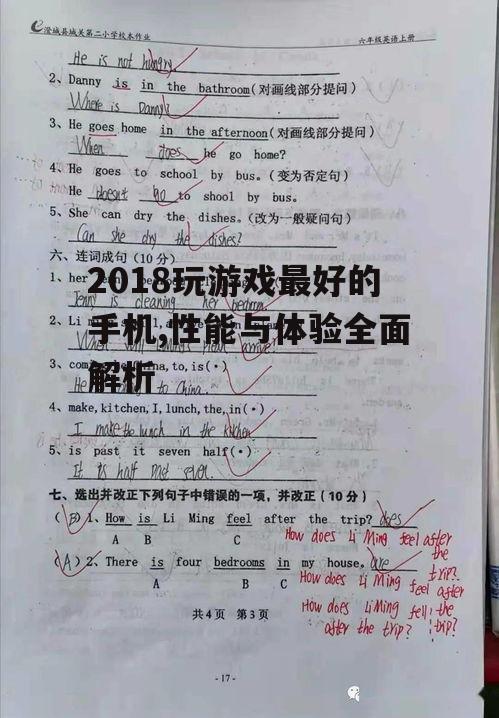 澄城县城关第二小学校本作业 六年级英语上册
He is not hungry
2、Danny is in the bathroom(对画线部分提问)
Where is Danny?
3、He goes home in the afternoon(对画线部分提问)
When does he go home?
4、He goes to school by bus。(变为否定句)
He doesn't go to shool by bus.
5、She can dry the dishes。(改为一般疑问句)
Can she dry the dishes?
六、连词成句(10分)
1、her
2018玩游戏最好的
Jenny is cleaning her bedroom.
2、Li
手机,性能与体验全面
arrive?
3、com na,to,is(•)
解析
He to China.
4、make,kitchen,I,lunch,the,in(•)
I make the lunch in the kitchen
5、is past it seven half(•)
It is half past seven.
七、选出并改正下列句子中错误的一项,并改正(10分)
(B)1、How is Li Ming feel after the trip? does
A B C
How does Li Ming feel after the trip?
(A)2、There is four bedrooms in my house。are
A B C
How does Li Ming feel after the trip?
How does Li Ming fell after the trip?
共4页 第3页
-17-